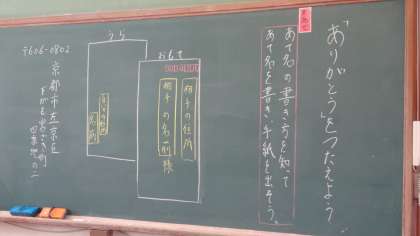 「ありがとう」をつたえよう
めあて
あて名の書き方を知って
あて名を書き、手紙を出そう。
おもて
相手の住所
相手の名前 様
うら
自分の住所
名前
〒606-0802
京都市左京区
下がも宮ざき町